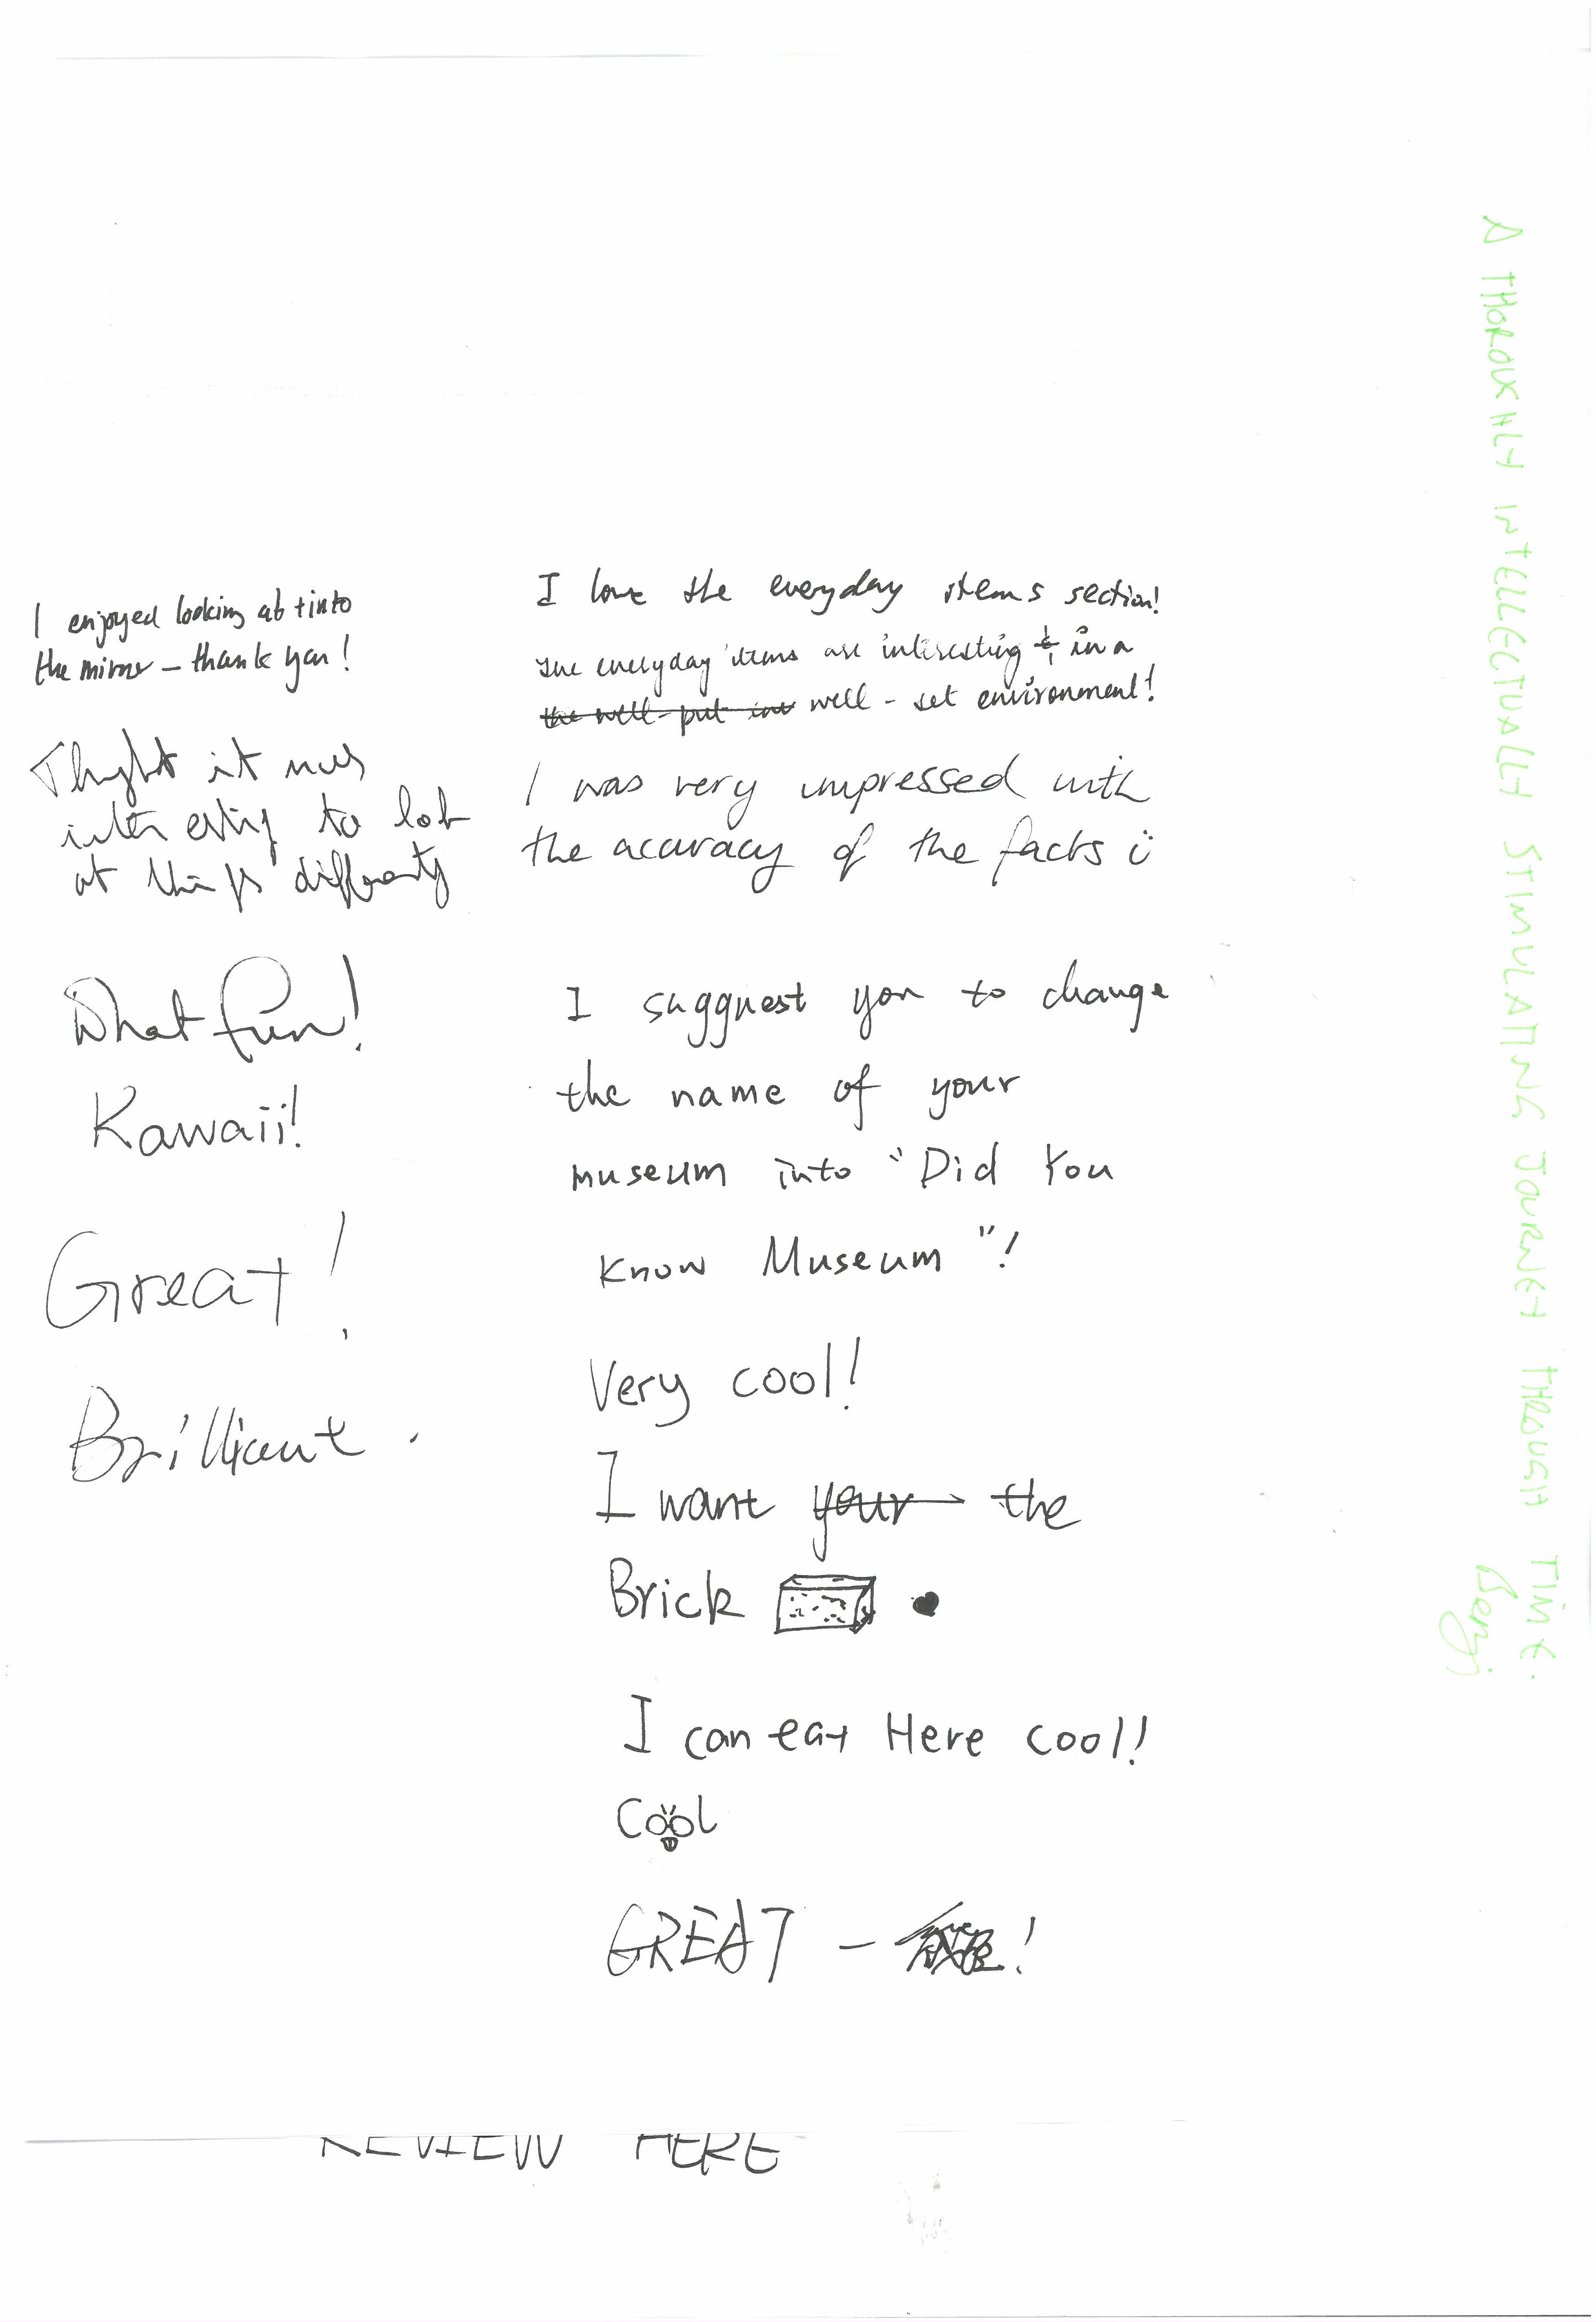 I enjoyed looking at + into
the mirror – thank you!
Thought it was
interesting to look
at things differently
What fun!
Kawaii!
Great!
Brilliant.
I love the everyday items section!
The everyday items are interesting & in a
the well-put into well-set environment!
I was very impressed with
the accuracy of the facts ü
I suggnest you to change
the name of your
museum into "Did You
Know Museum"!
Very cool!
I want your the
Brick ♥
I can eat Here cool!
Cool
GREAT – !
REVIEW HERE
A THOROUGHLY INTELLECTUALLY STIMULATING JOURNEY THROUGH TIME.
Benji